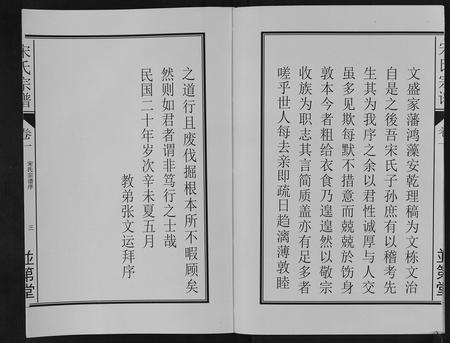 宋氏宗谱
卷一
並第堂
文盛家藩鸿藻安乾理稿为文栋文治
自是之後吾宋氏子孙庶有以稽考先
生其为我序之余以君性诚厚与人交
虽多见欺每默不措意而兢兢於饬身
敦本今者粗给衣食乃遑遑然以敬宗
收族为职志其言简质盖亦有足多者
嗟乎世人每去亲即疏日趋漓薄敦睦
之道行且废伐掘根本所不暇顾矣
然则如君者谓非笃行之士哉
民国二十年岁次辛未夏五月
教弟张文运拜序
宋氏宗谱
卷一
宋氏宗谱序
三
並第堂